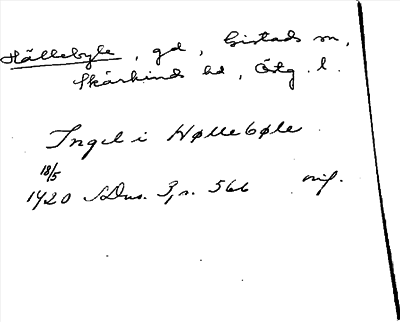 Hällebyle, gd, Gistads sn,
Skärkinds hd, Ötg. l.
Ingel i Høllebøle
18/5
1420 SDns. 3, s. 566 nif.